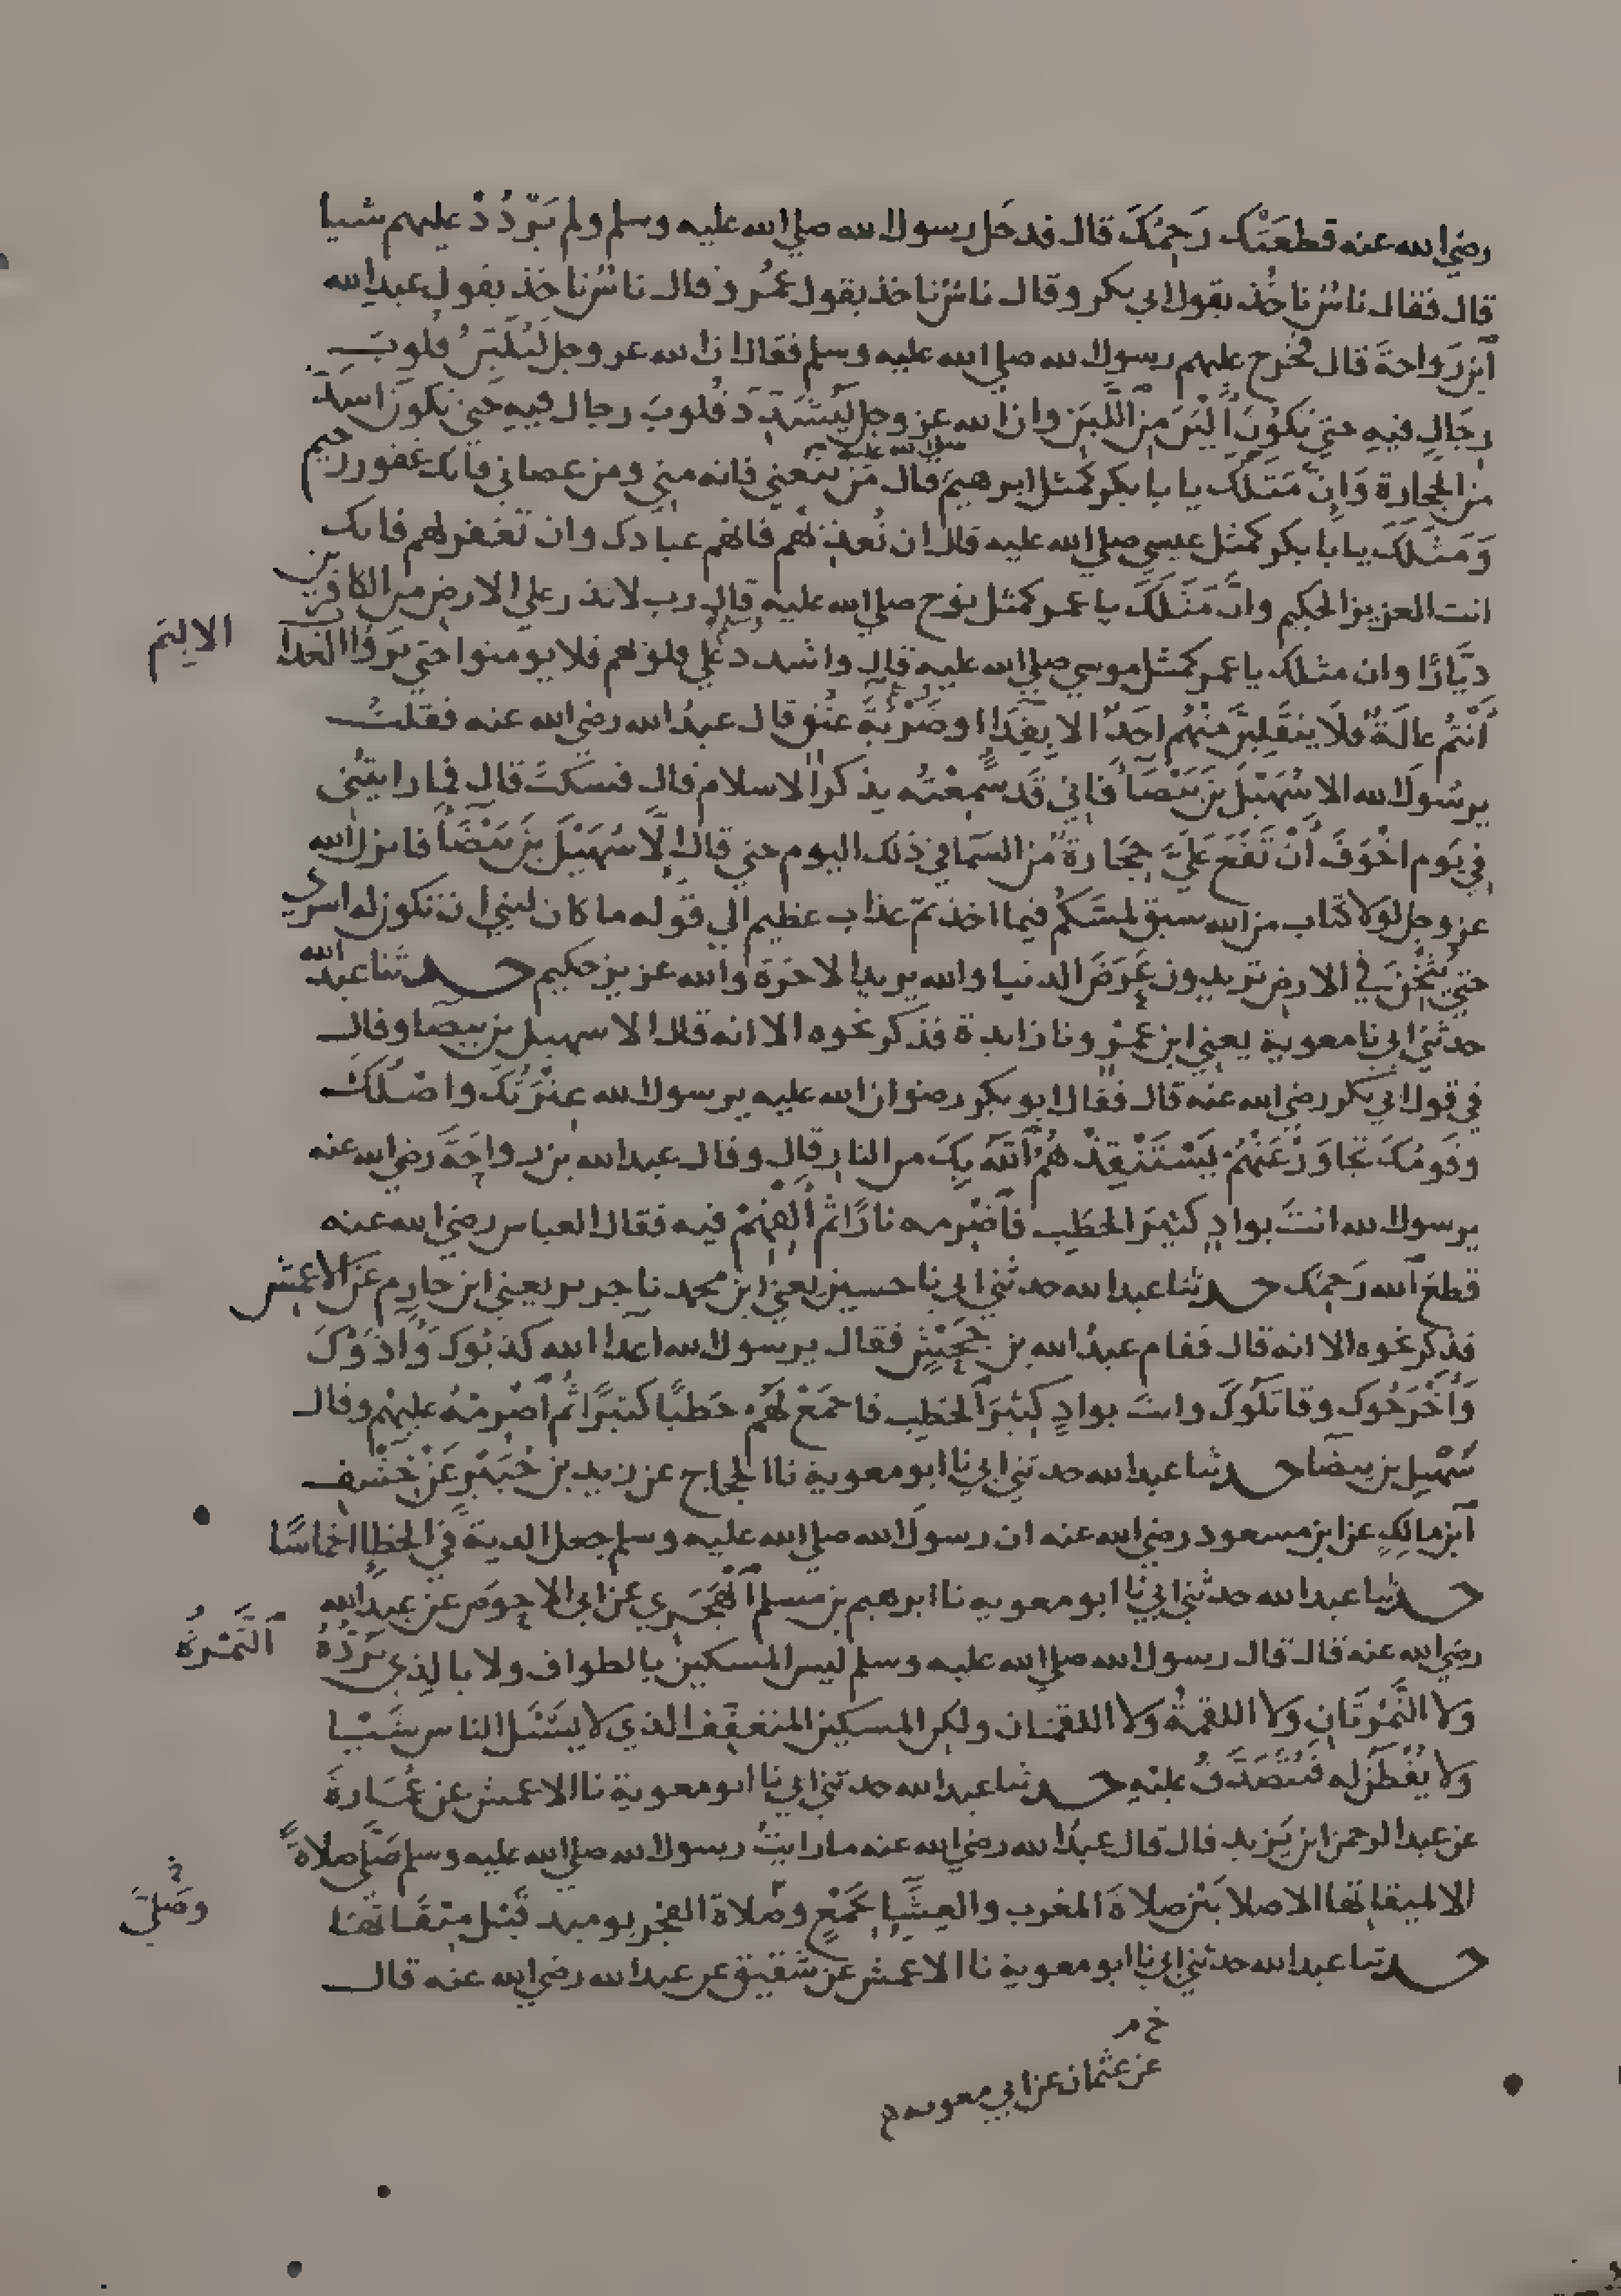 رضي الله عنه قطعتك رحمك قال فدخل رسول الله صلي الله عليه وسلم ولم يردد عليهم شيا
قال فقال ناس ناخذ بقول ابي بكر وقال ناس ناخذ بقول عمر وقال ناس ناخذ بقول عبد الله
ابن رواحة قال فخرج عليهم رسول الله صلي الله عليه وسلم فقال ان الله عز وجل ليلين قلوب
رجال فيه حتي تكون الين من اللبن وان الله عز وجل ليشدد قلوب رجال فيه حتي تكون اشد
من الحجارة وان مثلك يا با بكر كمثل ابرهيم صلي الله عليه قال من تبعني فانه مني ومن عصاني فانك غفور رحيم
ومثلك يا با بكر كمثل عيسي صلي الله عليه قال ان تعذبهم فانهم عبادك وان تغفر لهم فانك
انت العزيز الحكيم وان مثلك يا عمر كمثل نوح صلي الله عليه قال رب لا تذر علي الارض من الكافرين
ديارا وان مثلك يا عمر كمثل موسي صلي الله عليه قال واشدد علي قلوبهم فلا يومنوا حتي يروا العذا
الاليم
انتم عالة فلا ينفلتن منهم احد الا بفدا او ضربة عنق قال عبد الله رضي الله عنه فقلت
يرسول الله الا سهيل بن بيضا فاني قد سمعته يذكر الاسلام قال فسكت قال فما رايتني
في يوم اخوف ان تقع علي حجارة من السما في ذلك اليوم حتي قال الا سهيل بن بيضا فانزل الله
عز وجل لولا كتاب من الله سبق لمسكم فيما اخذتم عذاب عظيم الي قوله ما كان لنبي ان تكون له اسري
حتي يثخن في الارض تريدون عرض الدنيا والله يريد الاخرة والله عزيز حكيم حدثنا عبد الله
حدثني ابي نا معوية يعني ابن عمرو نا زايدة فذكر نحوه الا انه قال الا سهيل بن بيضا وقال
في قول ابي بكر رضي الله عنه قال فقال ابو بكر رضوان الله عليه يرسول الله عترتك واصلك
وقومك تجاوز عنهم يستنقذهم الله بك من النار قال وقال عبد الله بن رواحة رضي الله عنه
يرسول الله انت بواد كثير الحطب فاضرمه نارا ثم القهم فيه فقال العباس رضي الله عنه
قطع الله رحمك حدثنا عبد الله حدثني ابي نا حسين يعني ابن محمد نا جرير يعني ابن حازم عن الاعمش
فذكر نحوه الا انه قال فقام عبد الله بن جحش فقال يرسول الله اعدا الله كذبوك واذوك
واخرجوك وقاتلوك وانت بواد كثير الحطب فاجمع لهم حطبا كثيرا ثم اضرمه عليهم وقال
سهيل بن بيضا حدثنا عبد الله حدثني ابي نا ابو معوية نا الحجاج عن زيد بن جبير عن خشف
ابن مالك عن ابن مسعود رضي الله عنه ان رسول الله صلي الله عليه وسلم جعل الدية في الخطا اخماسا
حدثنا عبد الله حدثني ابي نا ابو معوية نا ابرهيم بن مسلم الهجري عن ابي الاحوص عن عبد الله
رضي الله عنه قال قال رسول الله صلي الله عليه وسلم ليس المسكين بالطواف ولا بالذي ترده
التمرة
ولا التمرتان ولا اللقمة ولا اللقمتان ولكن المسكين المتعفف الذي لا يسئل الناس شيا
ولا يفطن له فيتصدق عليه حدثنا عبد الله حدثني ابي نا ابو معوية نا الاعمش عن عمارة
عن عبد الرحمن ابن يزيد قال قال عبد الله رضي الله عنه ما رايت رسول الله صلي الله عليه وسلم صلي صلاة
الا لميقاتها الا صلاتين صلاة المغرب والعشا بجمع وصلاة الفجر يوميد قبل ميقاتها
وصلي
حدثنا عبد الله حدثني ابي نا ابو معوية نا الاعمش عن شقيق عن عبد الله رضي الله عنه قال
خ م
عن عثمان عن ابي معوية